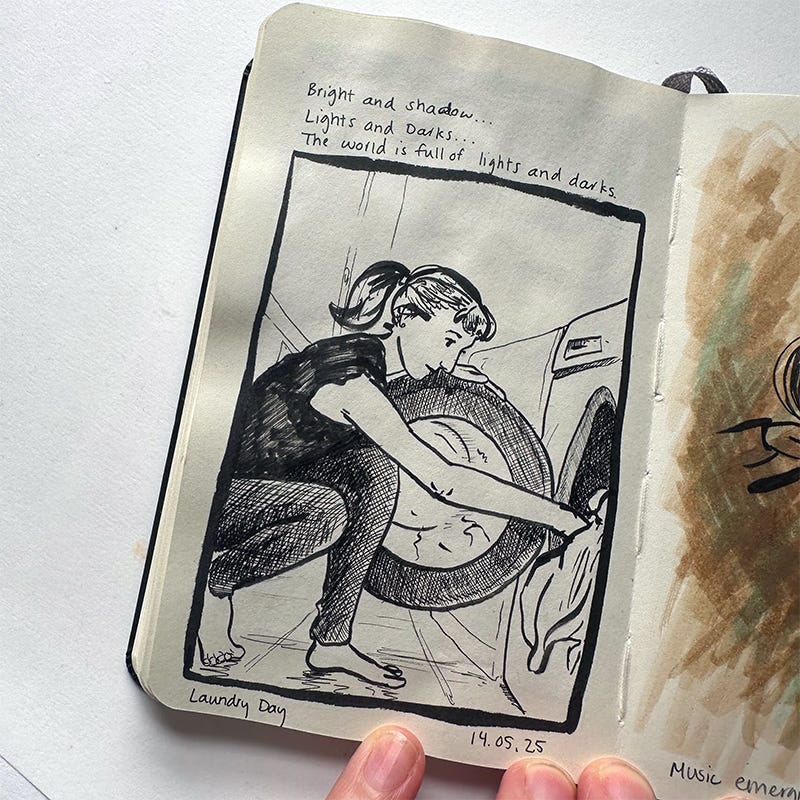 Bright and shadow...
Lights and Darks...
The world is full of lights and darks.
Laundry Day
14.05.25
Music